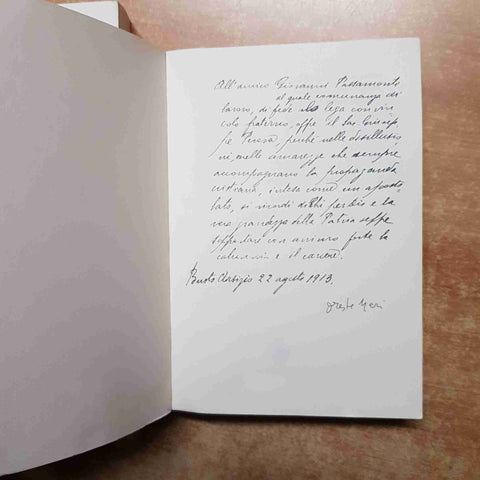 All'amico Giovanni Passamonti
al quale comunanza di
lavoro, di fede lega con vin
colo fraterno, offre il suo Giusep
pe Ferrari, perché nelle delusio
ni, nelle amarezze che sempre
accompagnano la propaganda
cristiana, intesa come un aposto
lato, si ricordi di chi per Dio e la
vera grandezza della Patria seppe
sopportare con animo forte la
calunnia e il carcere.
Busto Arsizio 22 agosto 1913.